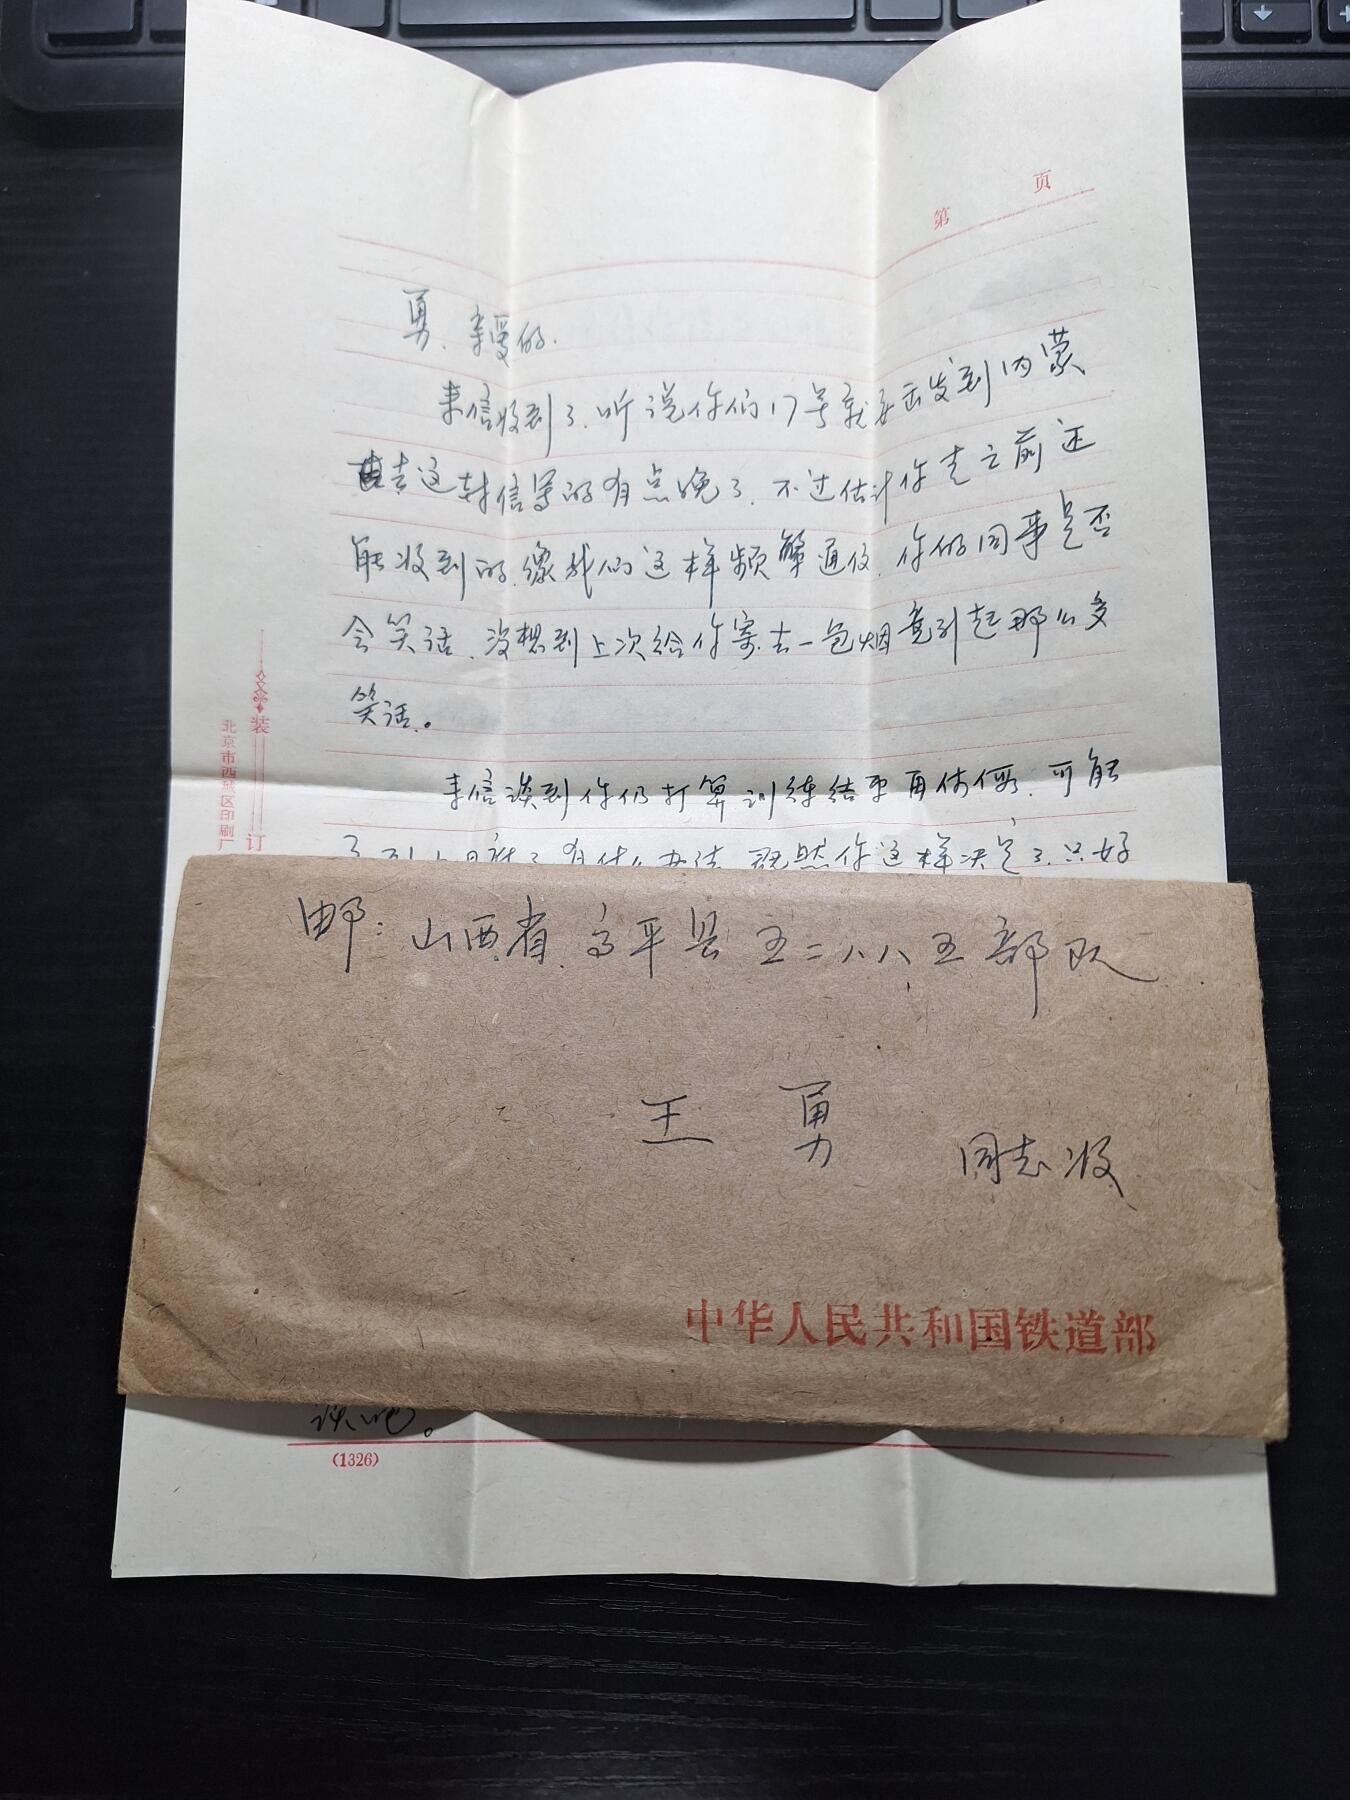 第 页
勇、亲爱的.
来信收到了.听说你们17号就要出发到内蒙
去这封信写的有点晚了.不过估计你走之前还
能收到的.像我们这样频繁通信.你的同事是否
会笑话.没想到上次给你寄去一包烟竟引起那么多
笑话。
来信谈到你仍打算训练结束再休假.可能
了.有什么办法.既然你这样决定了.只好
装
订
北京市西城区印刷厂
邮:山西省.高平县 五二八八五部队
王 勇
同志收
中华人民共和国铁道部
谈吧。
(1326)